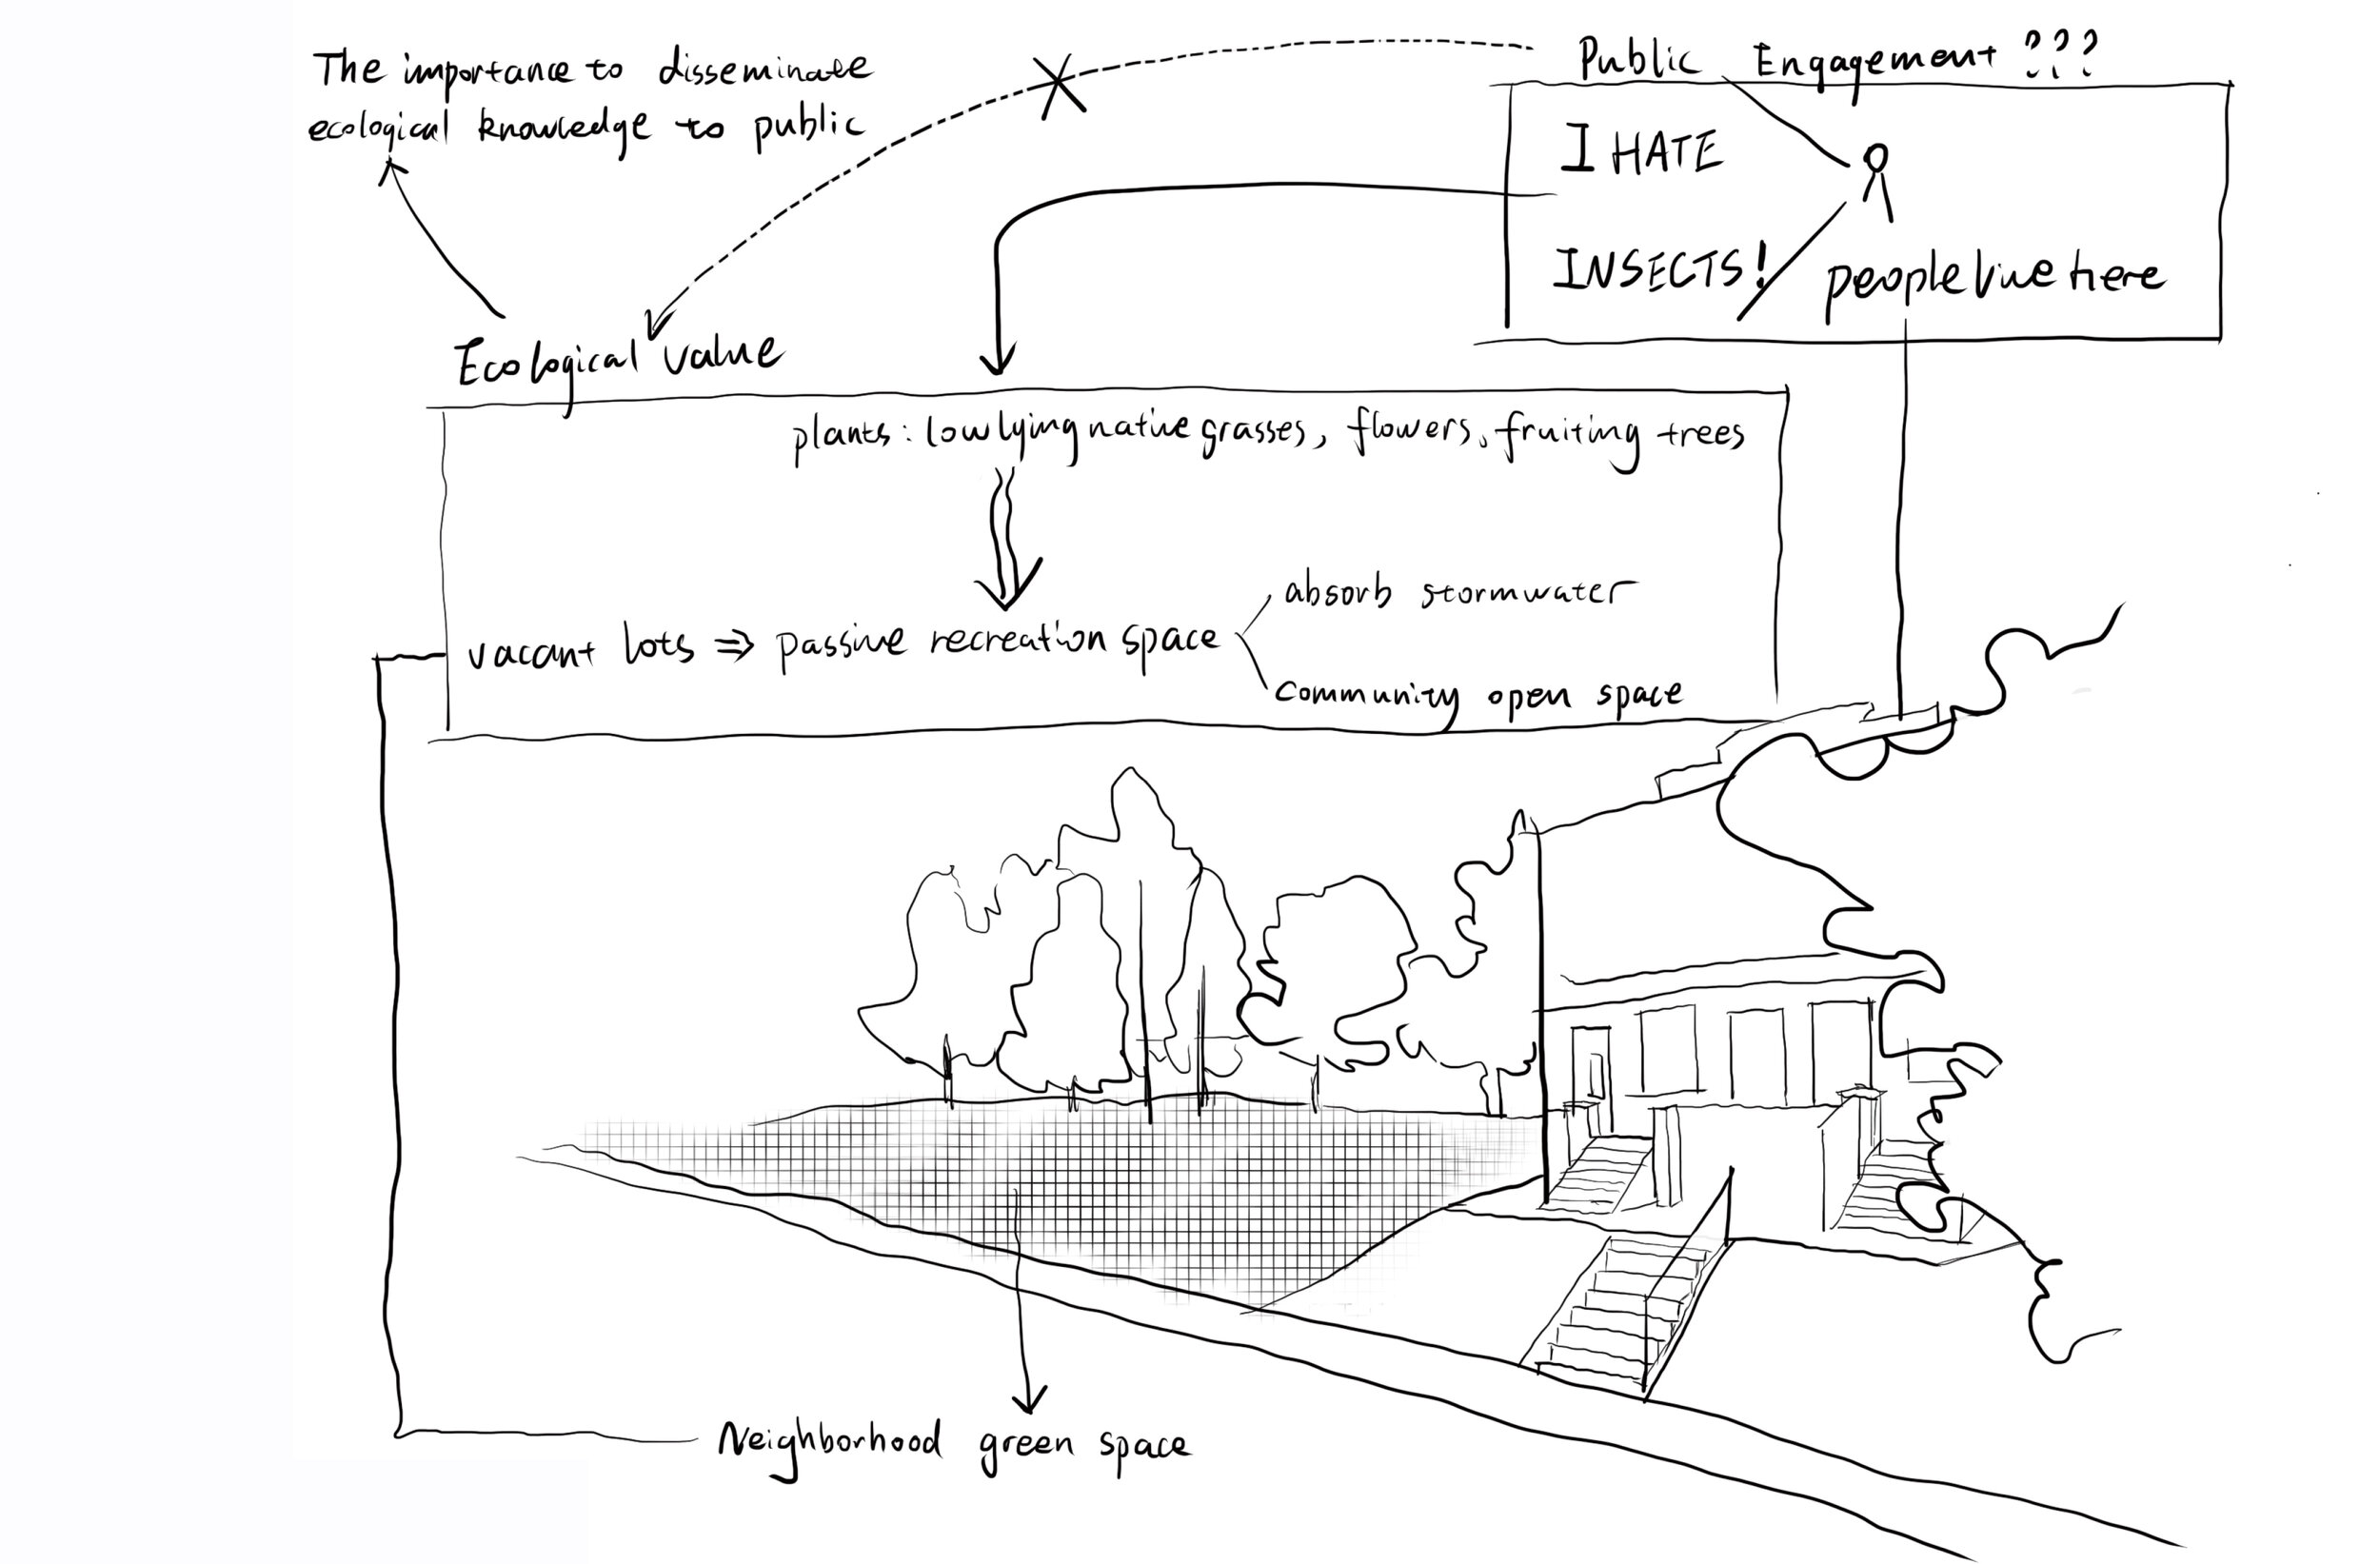 The importance to disseminate
ecological knowledge to public
Public Engagement ???
I HATE
INSECTS!
people live here
Ecological value
plants: low lying native grasses, flowers, fruiting trees
absorb stormwater
vacant lots ⇒ passive recreation space
Community open space
Neighborhood green space